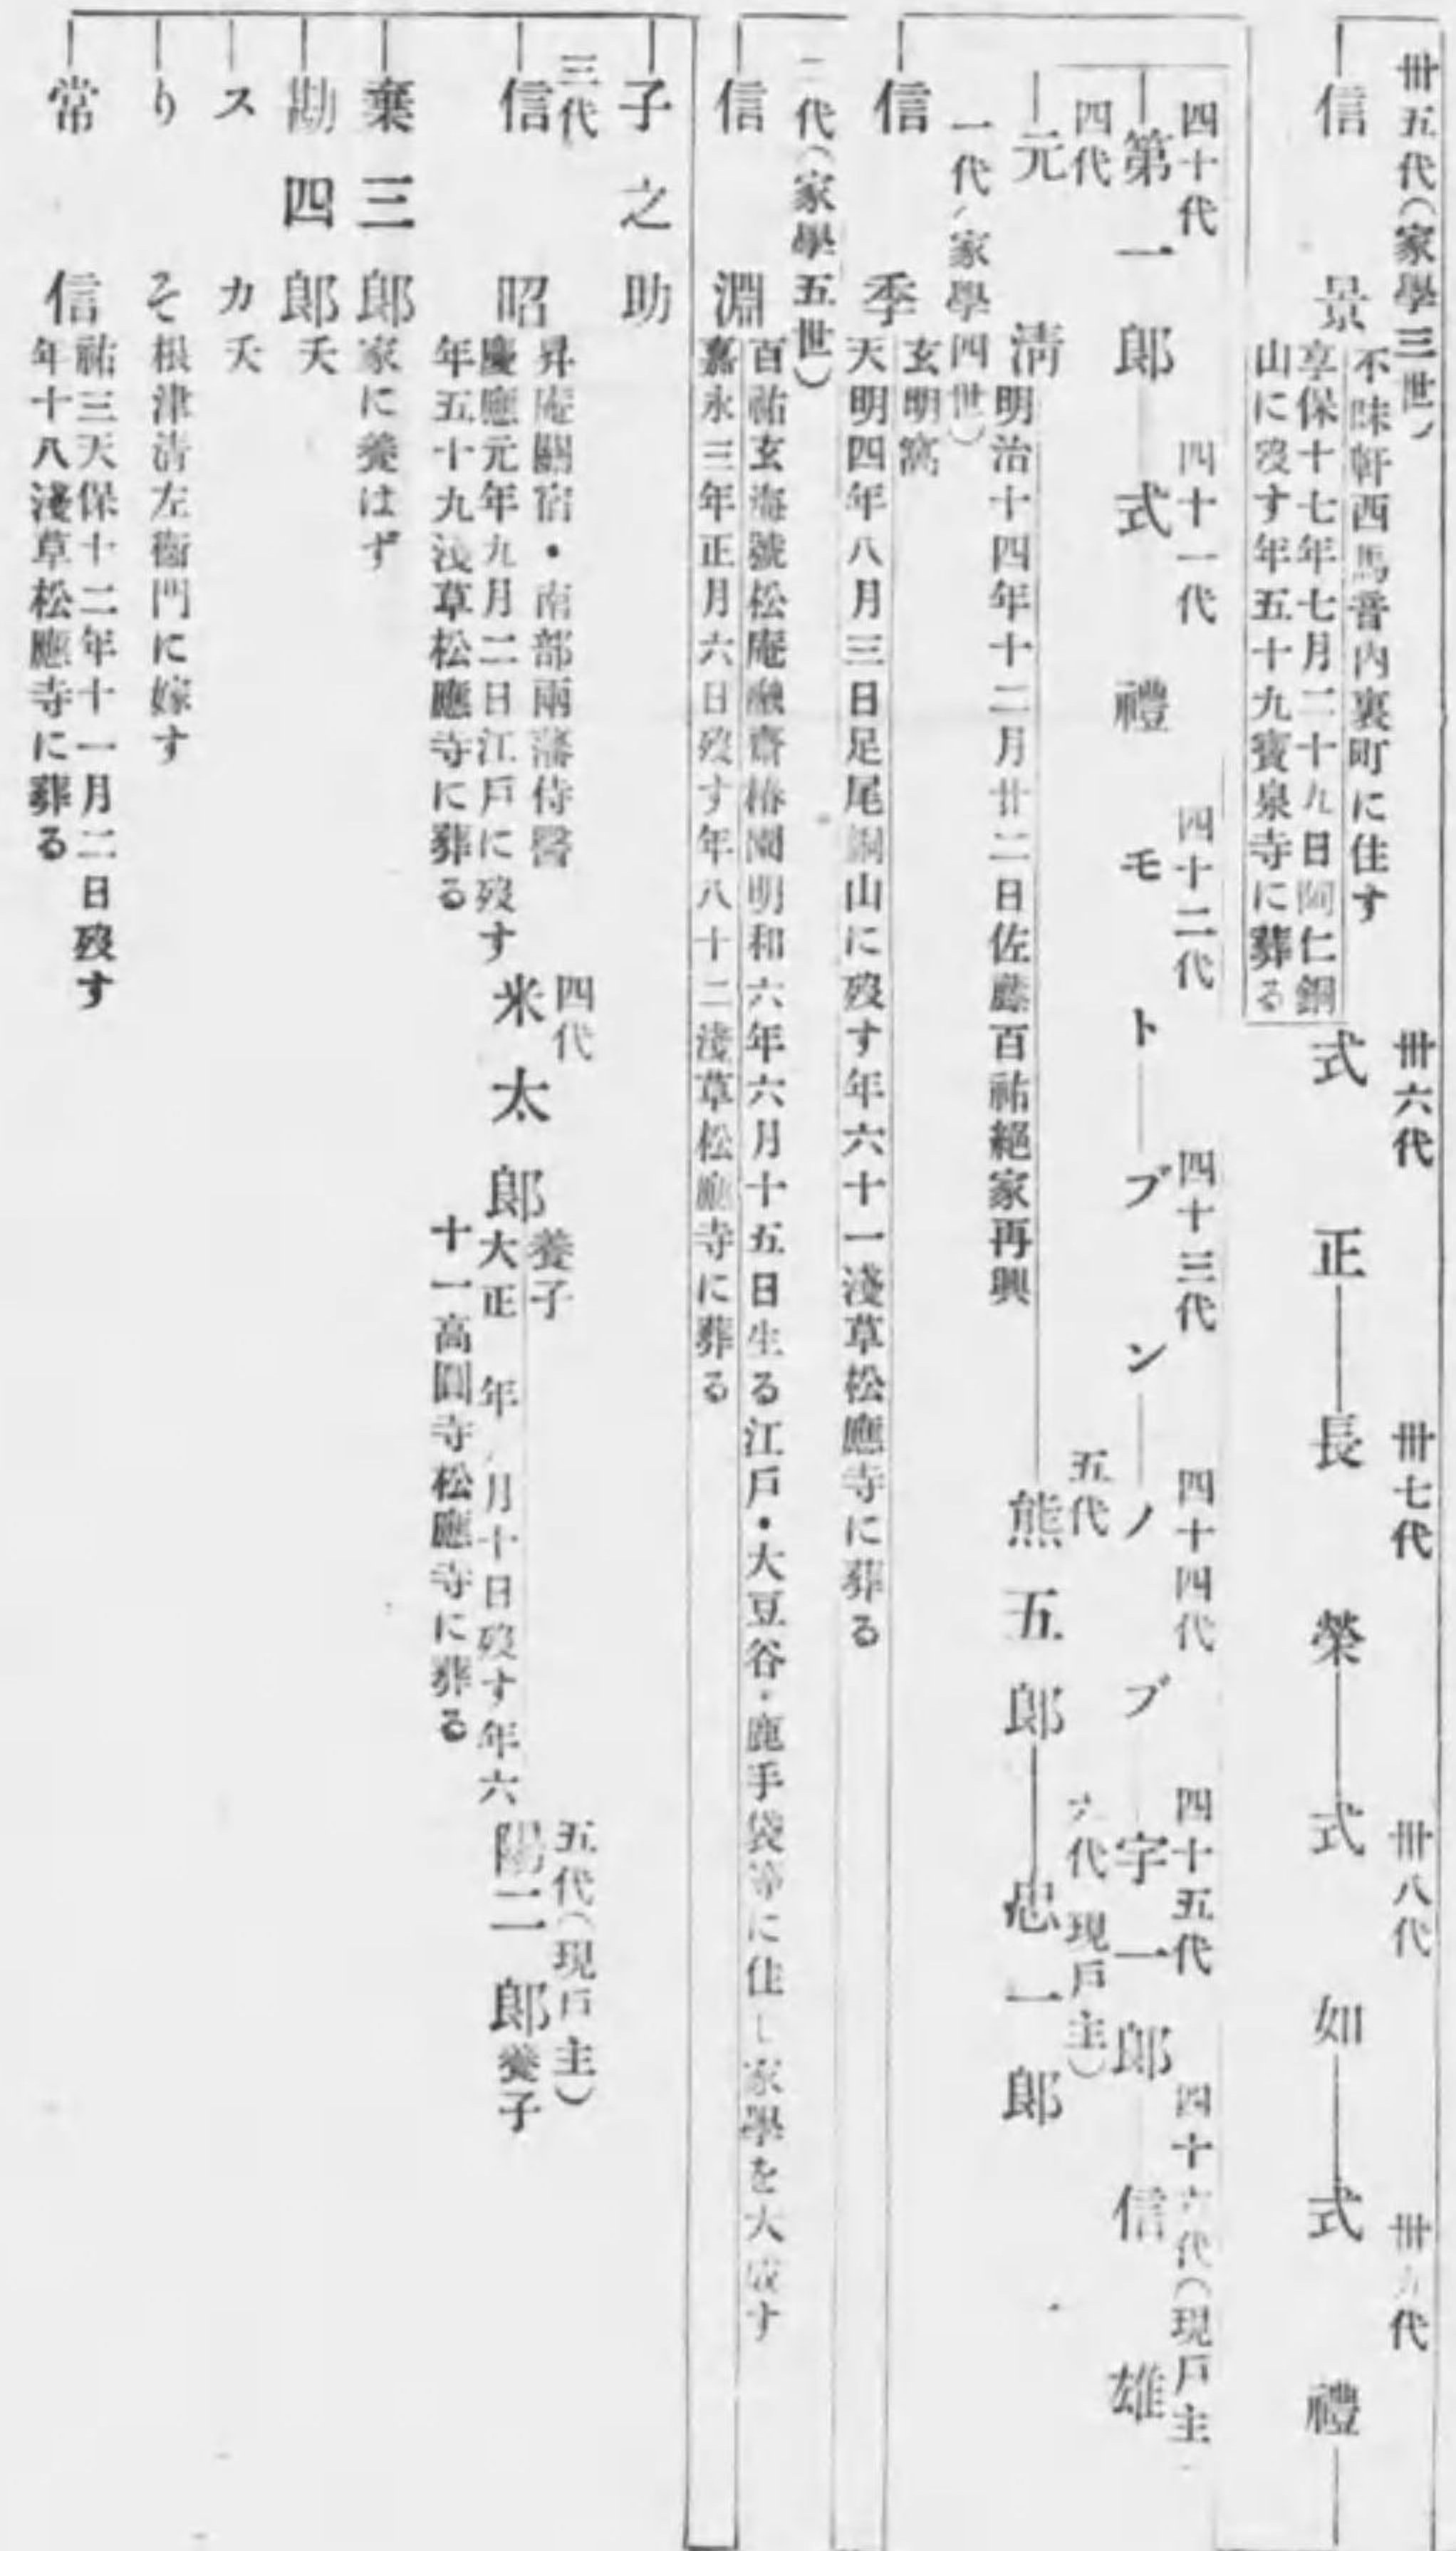 卅五代（家學三世）
信景
不昧軒西馬音内裏町に住す
享保十七年七月二十九日阿仁銅
山に歿す年五十九寶泉寺に葬る
卅六代
式正
卅七代
長榮
卅八代
式如
卅九代
式禮
四十代
第一郎
四十一代
式禮
四十二代
モト
四十三代
ブン
四十四代
ノブ
四十五代
字一郎
四十六代（現戸主
信雄
四代
元淸
明治十四年十二月廿二日佐藤百祐絕家再興
五代
熊五郎
六代 現戸主）
忠一郎
一代（家學四世）
信季
玄明窩
天明四年八月三日足尾銅山に歿す年六十一淺草松應寺に葬る
二代（家學五世）
信淵
百祐玄海號松庵融齋椿園明和六年六月十五日生る江戸・大豆谷・鹿手袋等に住し家學を大成す
嘉永三年正月六日歿す年八十二淺草松應寺に葬る
子之助
三代
信昭
昇庵關宿・南部兩藩侍醫
慶應元年九月二日江戸に歿す
年五十九淺草松應寺に葬る
四代
米太郎
養子
大正 年 月十日歿す年六
十一高圓寺松應寺に葬る
五代（現戸主）
陽二郎養子
棄三郎 家に養はず
勘四郎 夭
スカ 夭
りそ 根津淸左衞門に嫁す
常信
祐三天保十二年十一月二日歿す
年十八淺草松應寺に葬る